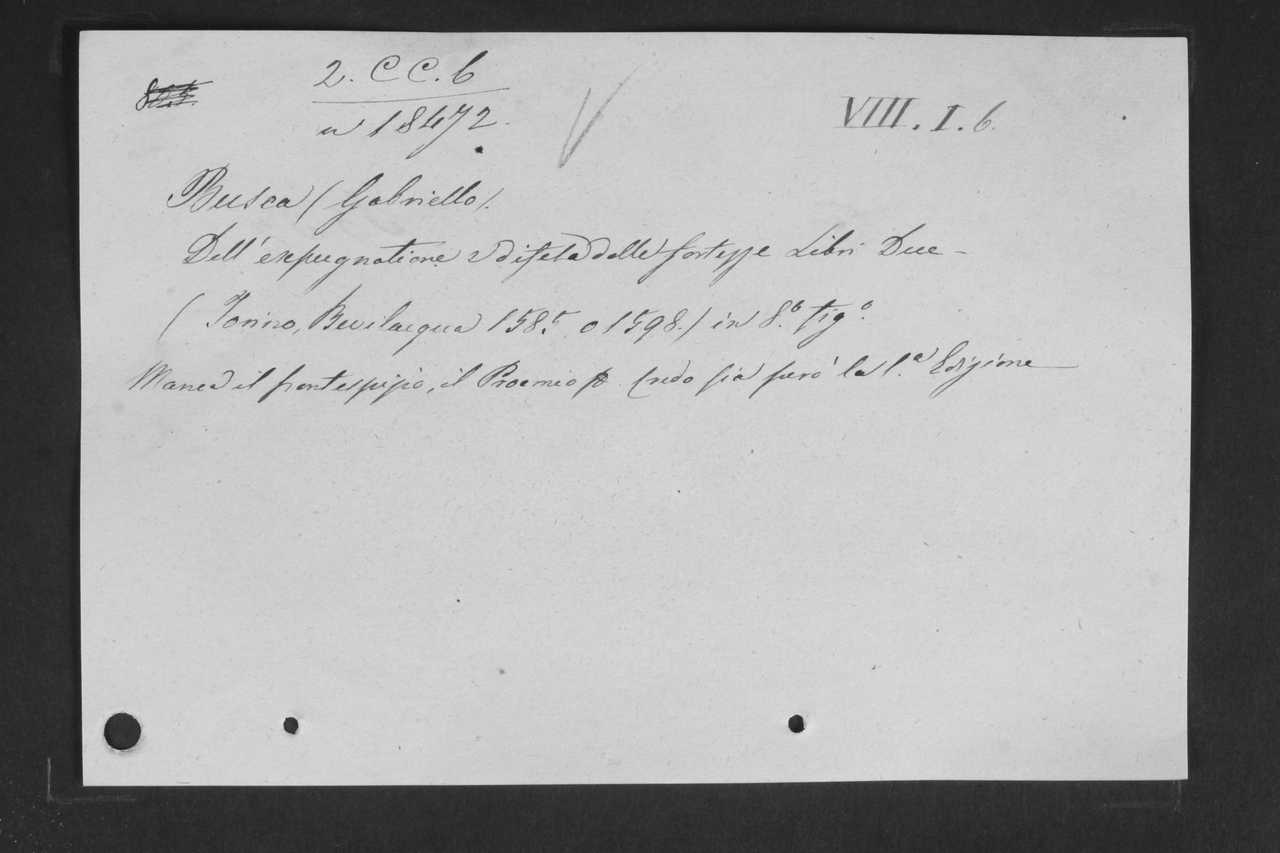 2. CC. 6
n 18472.
V
VIII. I. 6.
Busca (Gabriello).
Dell'expugnatione e difesa delle fortezze Libri Due -
(Torino, Bevilacqua 1585. o 1598.) in 8.º fig.º
Manca il frontespizio, il Proemio credo sia però la 1.ª Edizione